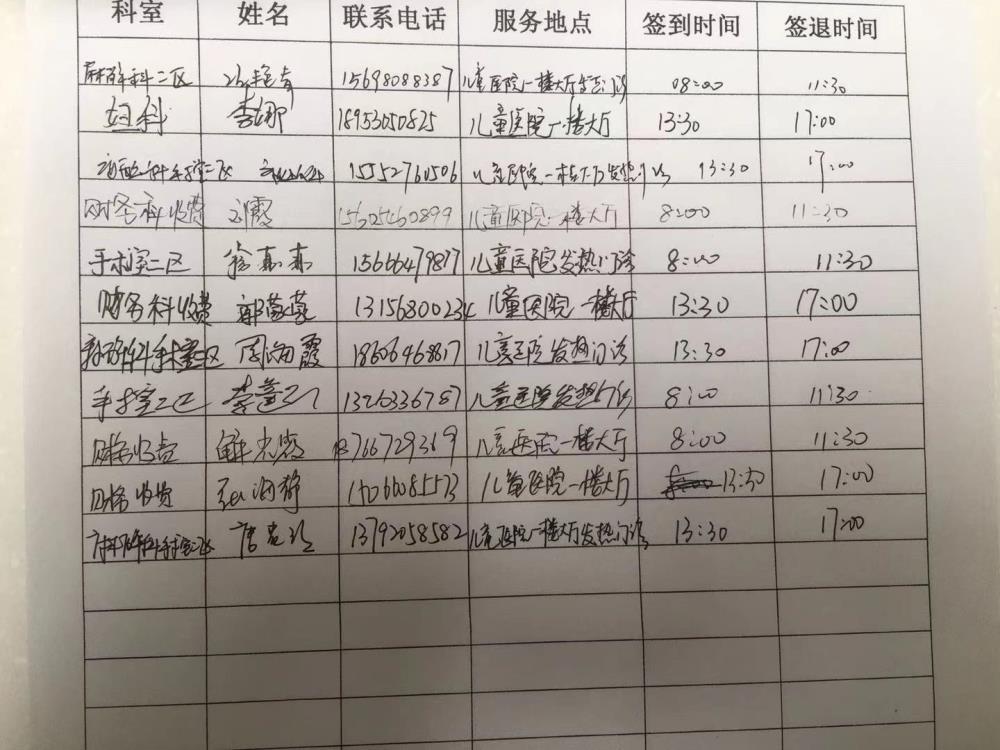 科室 姓名 联系电话 服务地点 签到时间 签退时间
麻醉科二区 15698088387 儿童医院一楼大厅发热门诊 08:00 11:30
妇科 李娜 18953050825 儿童医院一楼大厅 13:30 17:00
手术室二区 15552760506 儿童医院一楼大厅发热门诊 13:30 17:00
财务科收费 刘霞 15605460899 儿童医院一楼大厅 8:00 11:30
手术室二区 15666479877 儿童医院发热门诊 8:00 11:30
财务科收费 郭蒙蒙 13156800234 儿童医院一楼大厅 13:30 17:00
麻醉科手术室二区 周海霞 18606468817 儿童医院发热门诊 13:30 17:00
手术室二区 1326336787 儿童医院发热门诊 8:00 11:30
财务收费 解光霞 18766729369 儿童医院一楼大厅 8:00 11:30
财务收费 张海静 儿童医院一楼大厅 13:30 17:00
麻醉科手术室二区 唐 13792058582 儿童医院一楼大厅发热门诊 13:30 17:00